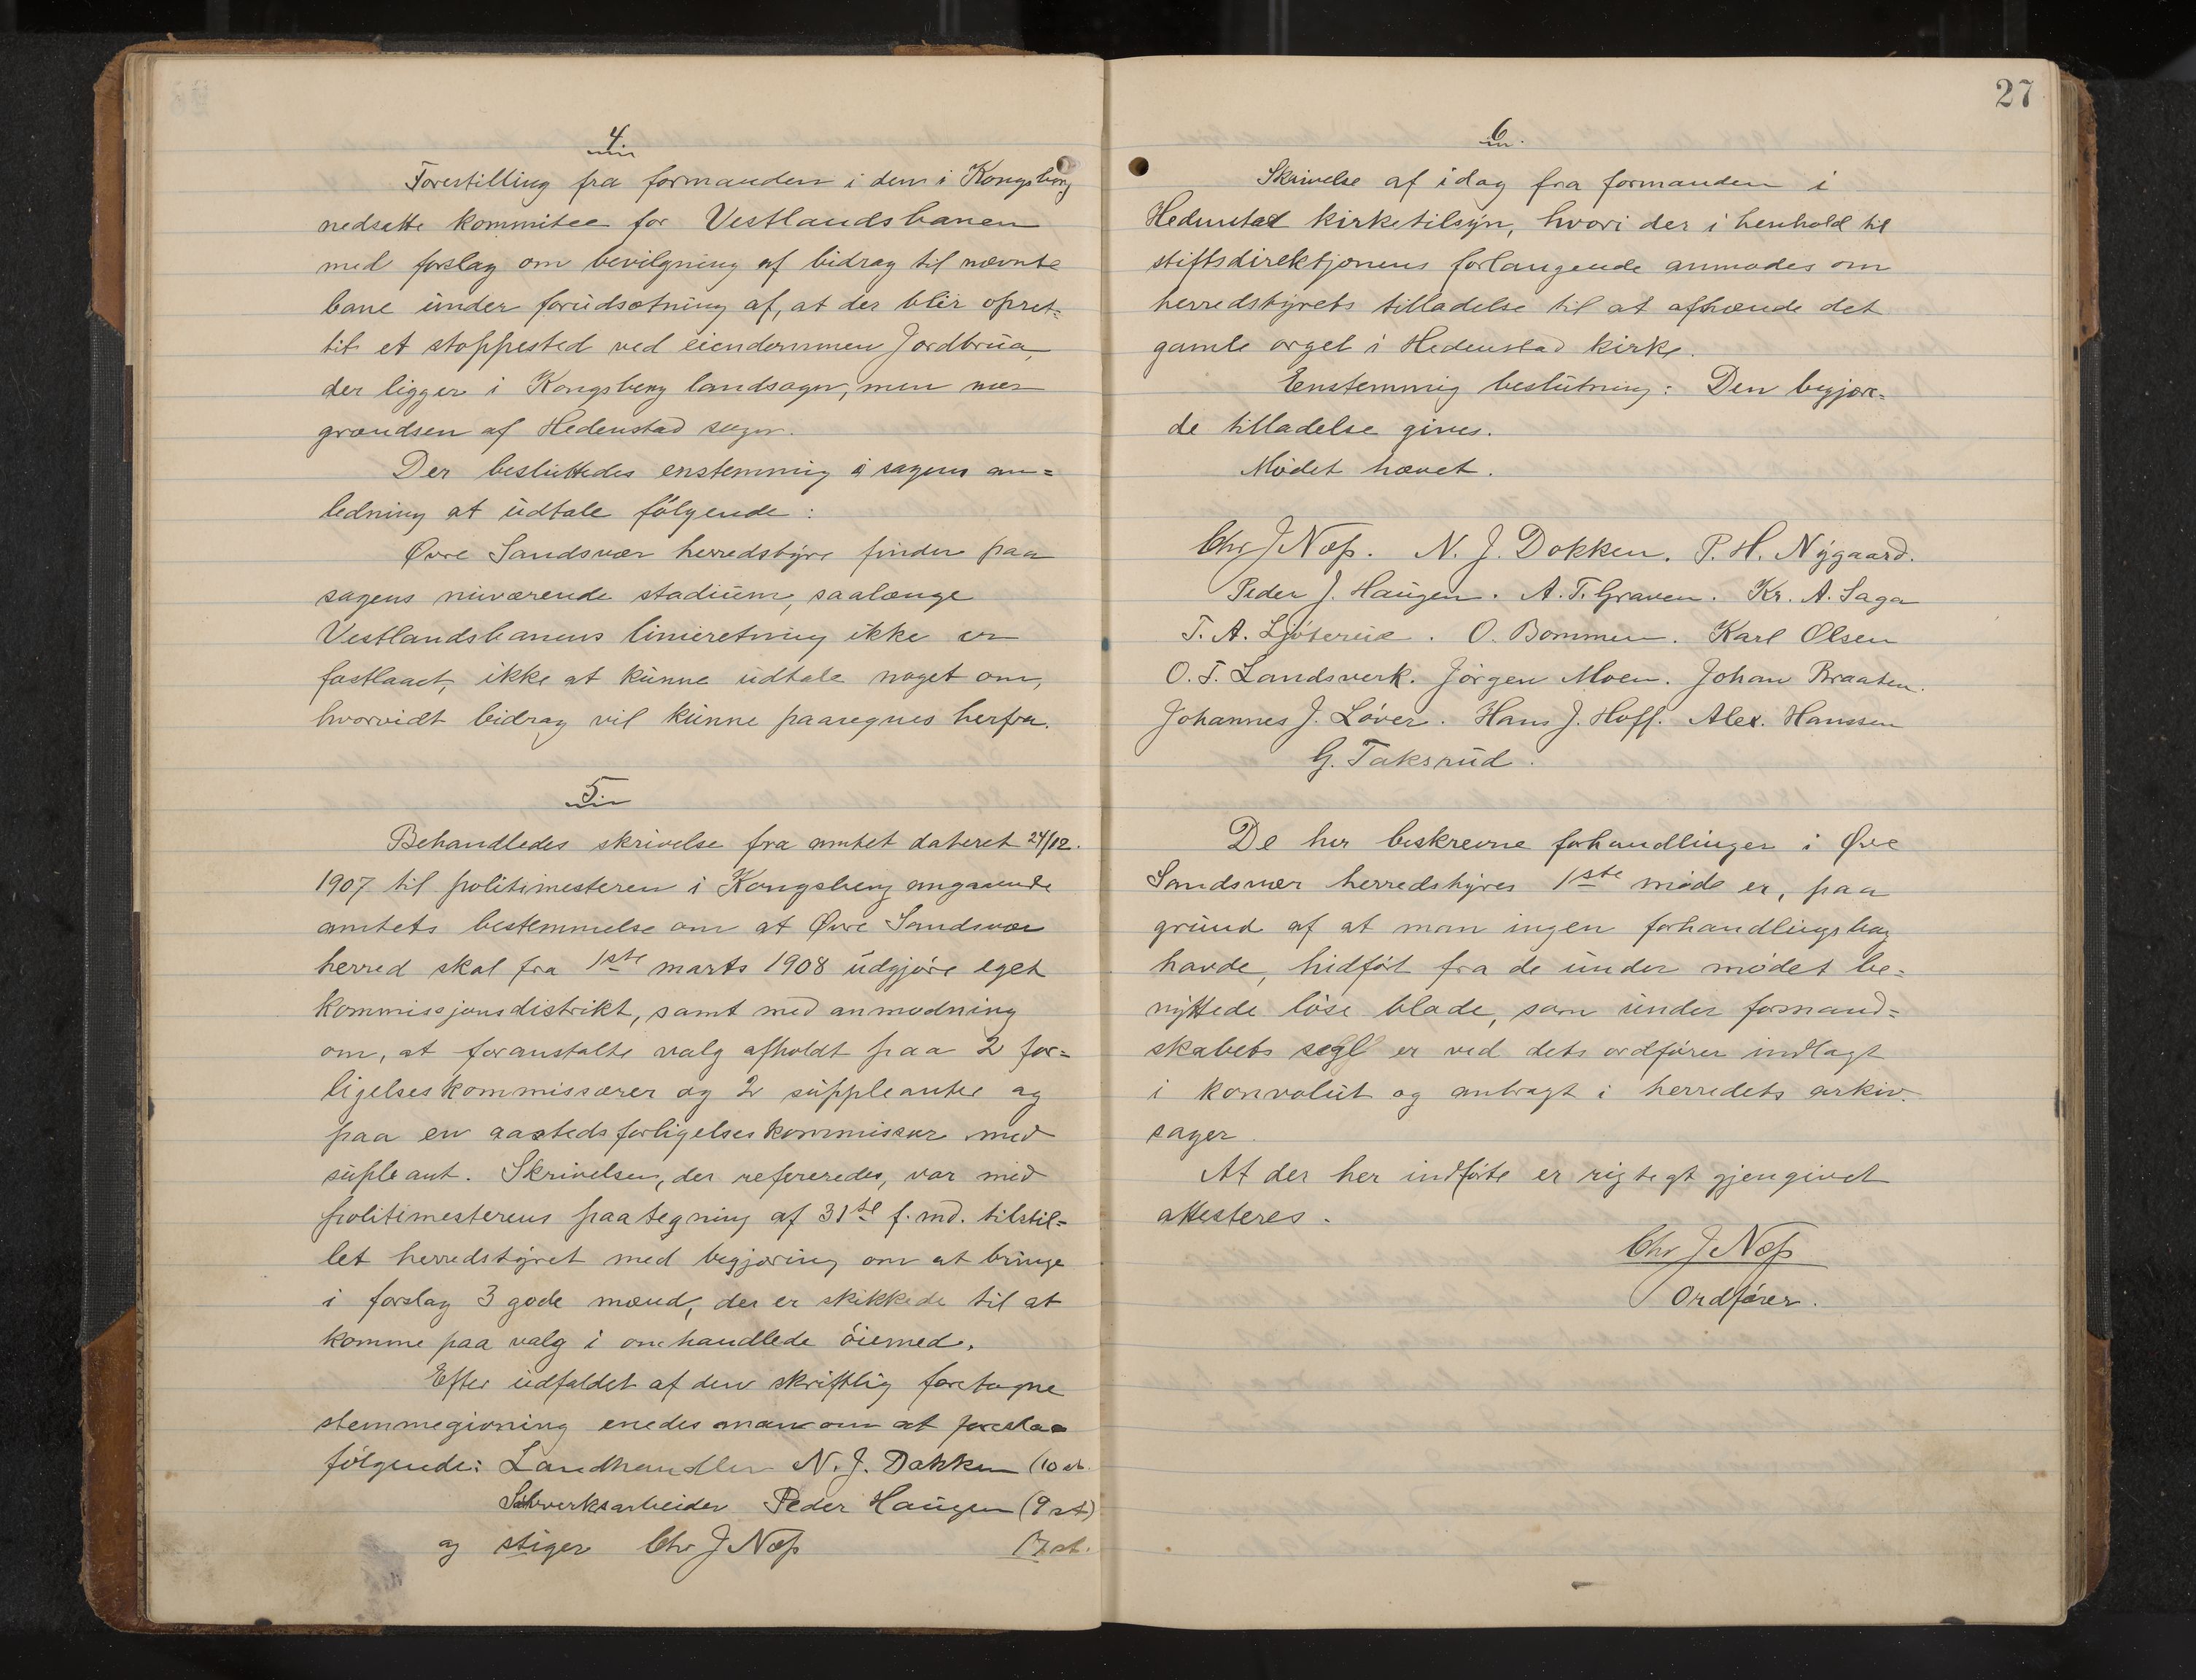 4
Forestilling fra formanden i den i Kongsberg
nedsatte kommitee for Vestlandsbanen
med forslag om bevilgning af bidrag til nævnte
bane under forudsætning af, at der blir opret-
tit et stoppested ved eiendommen Jordbrua,
der ligger i Kongsberg landsogn, men nær
grændsen af Hedenstad sogn.
Der besluttedes enstemmig i sagens an=
ledning at udtale følgende:
Øvre Sandsvær herredstyre finder paa
sagens nuværende stadium, saalænge
Vestlandsbanens linieretning ikke er
fastlaaet, ikke at kunne udtale noget om,
hvorvidt bidrag vil kunne paaregnes herfra.
5
Behandledes skrivelse fra amtet dateret 24/12.
1907 til politimesteren i Kongsberg angaaende
amtets bestemmelse om at Øvre Sandsvær
herred skal fra 1ste marts 1908 udgjøre eget
kommissjonsdistrikt, samt med anmodning
om, at foranstalte valg afholdt paa 2 for=
ligelseskommissærer og 2 suppleanter og
paa en aastedsforligelseskommissær med
supleant. Skrivelsen, der refereredes, var med
politimesterens paategning af 31te f. md. tilstil=
let herredstyret med begjæring om at bringe
i forslag 3 gode mænd, der er skikkede til at
komme paa valg i omhandlede øiemed.
Efter udfaldet af den skriftlig foretagne
stemmegivning enedes man om at foreslaa
følgende: Landhandler N. J. Dokken (10 st.
Sølvverksarbeider Peder Haugen (9 st)
og stiger Chr J Næs 17 st.
27
6
Skrivelse af idag fra formanden i
Hedenstad kirketilsyn, hvori der i henhold til
stiftsdirektjonens forlangende anmodes om
herredstyrets tilladelse til at afhænde det
gamle orgel i Hedenstad kirke.
Enstemmig beslutning: Den begjære=
de tilladelse gives.
Mødet hævet.
Chr J Næs. N. J. Dokken. P. H. Nygaard.
Peder J. Haugen. A. T. Graven. Kr. A. Saga
T. A. . O. Bommen. Karl Olsen
O. T. Landsverk. Jørgen Moen. Johan Braaten.
Johannes J. Løver. Hans J. Hoff. Alex. Hanssen
G. Taksrud.
De her beskrevne forhandlinger i Øvre
Sandsvær herredstyres 1ste møde er, paa
grund af at man ingen forhandlingsbog
havde, hidført fra de under mødet be=
nyttede løse blade, som under formand=
skabets segl er ved dets ordfører indlagt
i konvolut og antragt i herredets arkiv.
sager.
At der her indførte er rigtegt gjengivet
attesteres.
Chr J Næs
Ordfører.